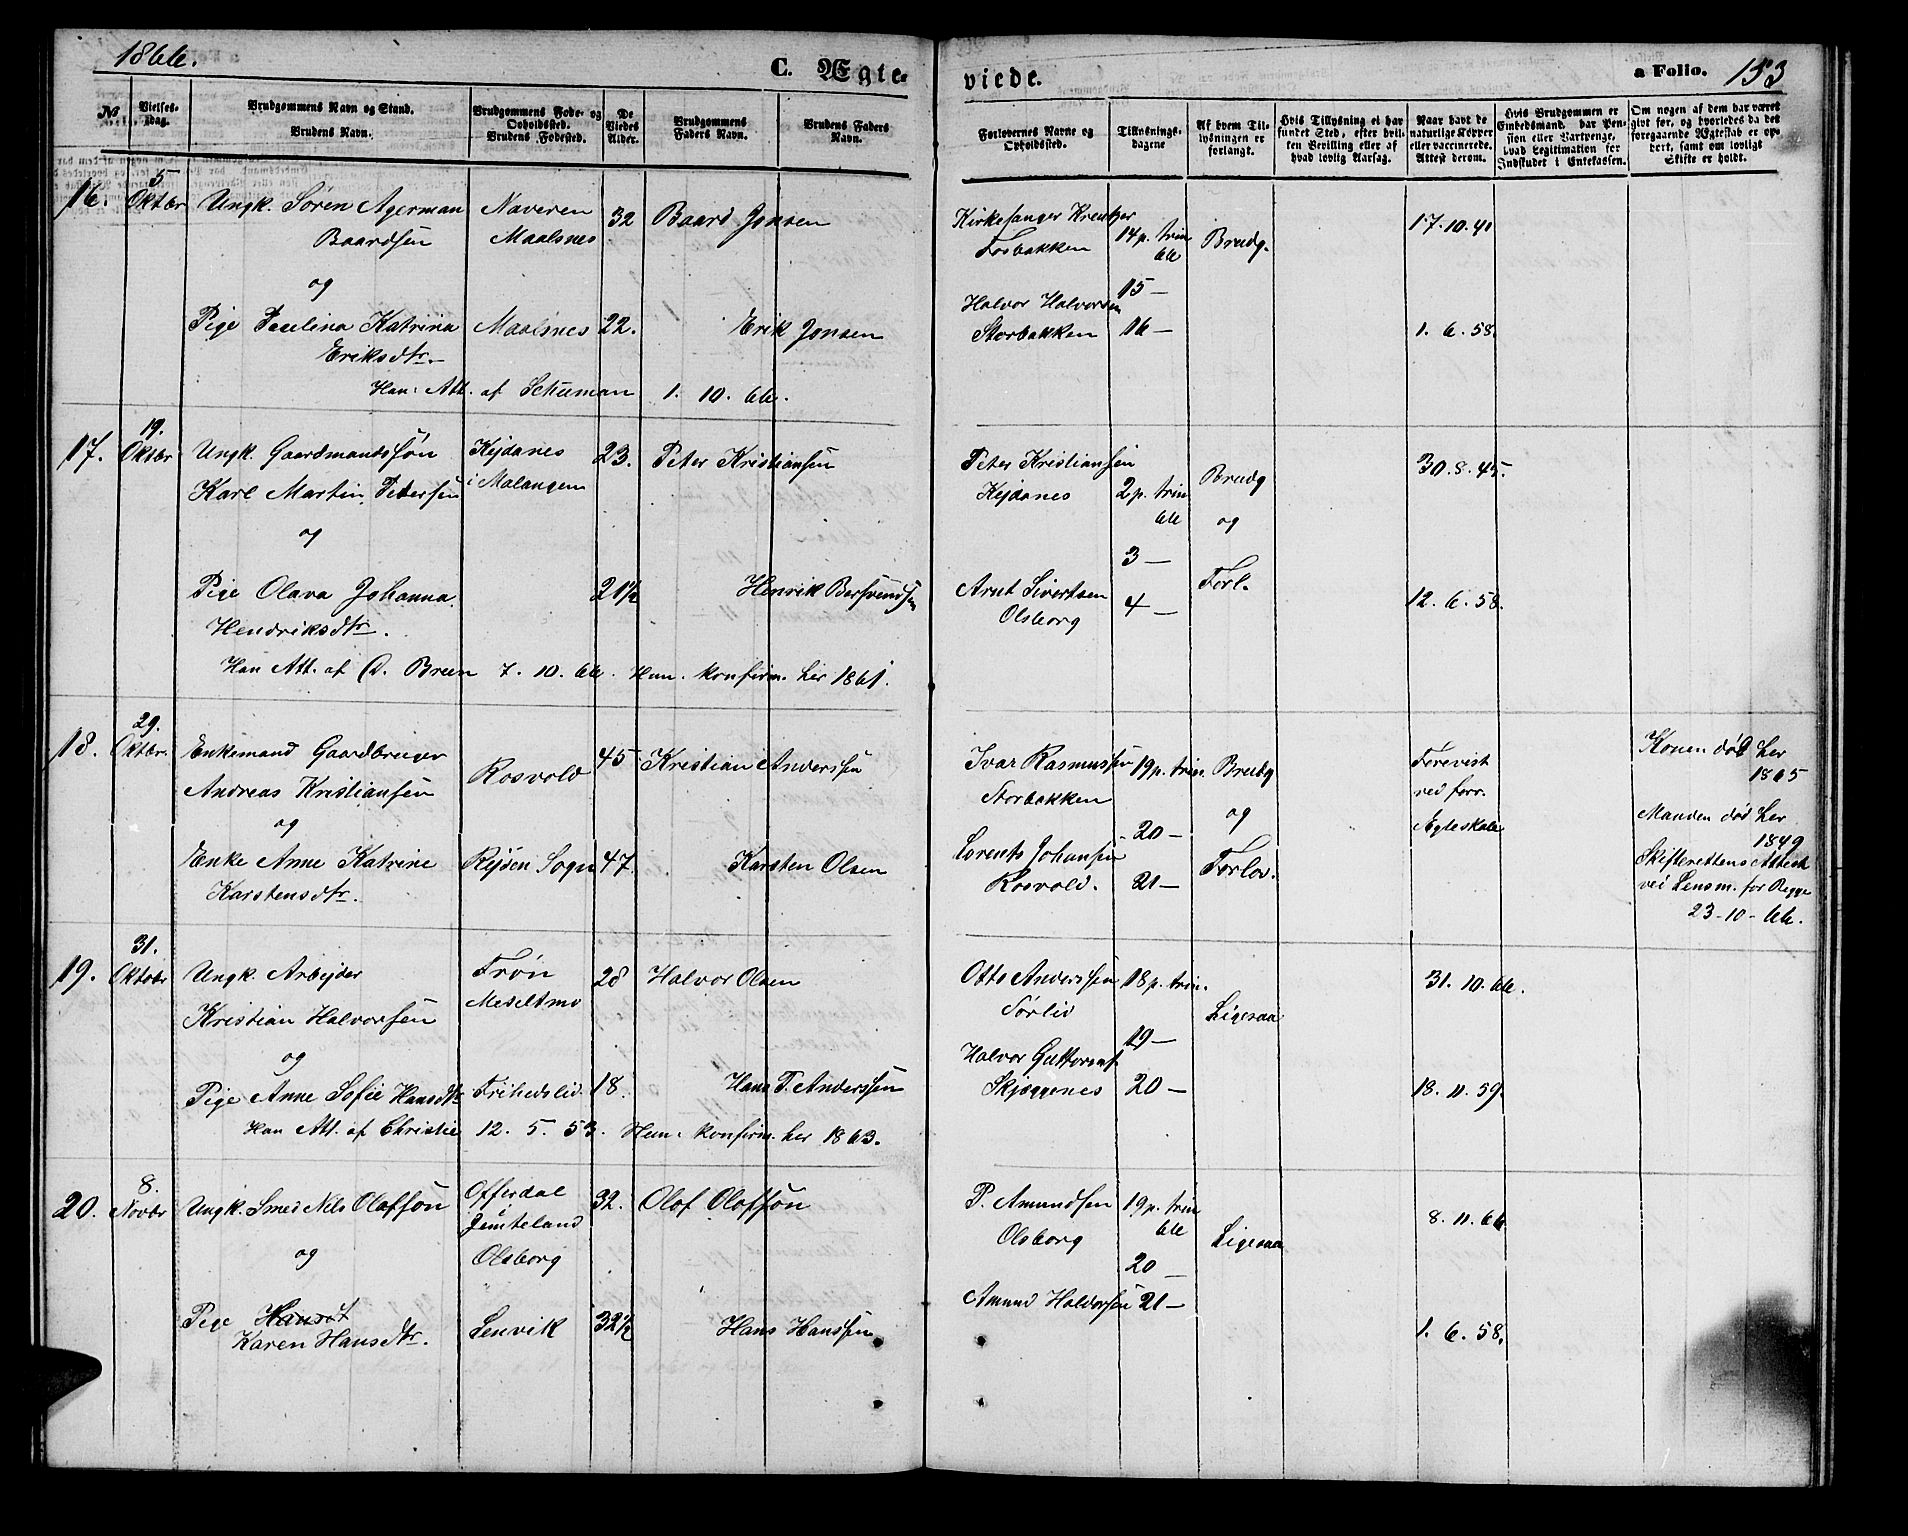 1866.
C. Ægte-
viede.
a Folio. 153
№
Vielses-
dag.
Brudgommens Navn og Stand.
Brudens Navn.
Brudgommens Føde- og
Opholdssted.
Brudens Fødested.
De
Viedes
Alder.
Brudgommens
Faders Navn.
Brudens Faders
Navn.
Forlovernes Navne og
Opholdssted.
Tillysnings-
dagene
Af hvem Til-
lysningen er
forlangt.
Hvis Tillysning ei har
fundet Sted, efter hvil-
ken Bevilling eller af
hvad lovlig Aarsag.
Naar havt de
naturlige Kopper
eller vaccinerede.
Attest derom.
Hvis Brudgommen er
Embedsmand, har Pen-
sion eller Vartpenge,
hvad Legitimation for
Indskudet i Enkekassen.
Om nogen af dem har været
givt før, og hvorledes da det
foregaaende Ægteskab er op-
hørt, samt om lovligt
Skifte er holdt.
16.
5
Oktbr
Ungk. Søren Agerman
Baardsen
Naveren
Maalsnes
32
Baard Jonsen
Kirkesanger Kreutzer
Fosbakken
14 p. trin
66
Brudg.
17.10.41
og
15 —
Pige Paulina Katrina
Eriksdtr.
Maalsnes
22.
Erik Jonsen
Halvor Halvorsen
Storbakken
16 —
1. 6. 58.
Han: Att. af Schuman 1. 10. 66.
17.
19.
Oktbr
Ungk. Gaardmandssøn
Karl Martin Pedersen
Kjidanes
i Malangen
23.
Peter Kristiansen
Peter Kristiansen
Kjidanes
2 p. trin
66
Brudg
og
Forl.
30.8.45.
og
3 —
Pige Olava Johanna
Hendriksdtr.
21½
Henrik Bersvendsen
Arnt Sivertsen
Olsborg
4 —
12. 6. 58.
Han Att. af O. Breen 7. 10. 66. Hun. konfirm. her 1861.
18.
29.
Oktbr.
Enkemand Gaardbruger
Andreas Kristiansen
Rosvold
45
Kristian Anderssen
Ivar Rasmussen
Storbakken
19 p. trin.
Brudg
og
Forlov.
Forevist
ved forr.
Ægteskab
Konen død her
1865
og
20 —
Enke Anne Katrine
Karstensdtr.
Rejsen Sogn
47.
Karsten Olsen
Lorents Johansen
Rosvold.
21 —
Manden død her
1849
Skifterettens Attest
ved Lensm. for Begge
23-10-66.
19.
31.
Oktobr
Ungk. Arbejder
Kristian Halvorsen
Trøn
Meseltmo
28
Halvor Olsen
Otto Anderssen
Sørlid
18 p. trin.
Ligesaa
31. 10. 66.
og
19 —
Pige Anne Sofie Hansdtr
Frihedslid
18.
Hans T. Anderssen
Halvor Guttorms.
Skjæggenes
20 —
18. 11. 59.
Han Att. af Christie 12. 5. 53. Hun: konfirm. her 1863.
20.
8.
Novbr
Ungk. Smed Nels Olofsson
Offerdal
Jemteland
Olsborg
32.
Olof Olofsson
P. Amundsen
Olsborg
19 p. trin
66
Ligesaa
8. 11. 66.
og
20 —
Pige Hansdt
Karen Hansdtr.
Lenvik
32½
Hans Hanssen
Amund Haldorsen
21 —
1. 6. 58.